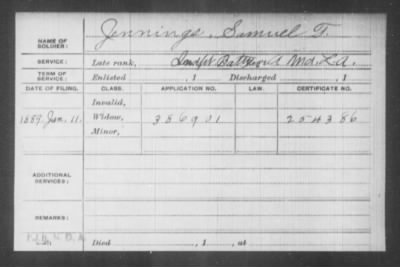 NAME OF SOLDIER: Jennings, Samuel T.
SERVICE: Late rank, Md. L. A.
TERM OF SERVICE: Enlisted , 1 Discharged , 1
DATE OF FILING. CLASS. APPLICATION NO. LAW. CERTIFICATE NO.
Invalid,
1889 Jan. 11. Widow, 386901 254386
Minor,
ADDITIONAL SERVICES:
REMARKS:
Died , 1 , at